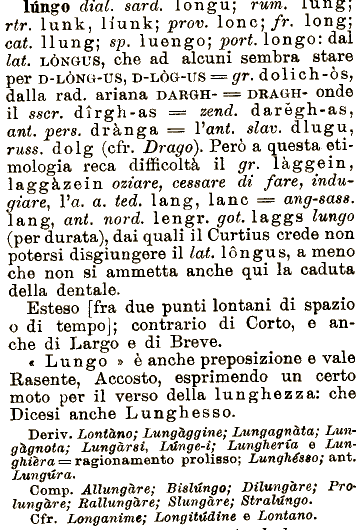 lúngo dial. sard. longu; rum. lung;
rtr. lunk, líunk; prov. lonc; fr. long;
cat. llung; sp. luengo; port. longo: dal
lat. LÒNGUS, che ad alcuni sembra stare
per D-LÒNG-US, D-LÒG-US = gr. dolich-òs,
dalla rad. ariana DARGH- = DRAGH- onde
il sscr. dîrgh-as = zend. darĕgh-as,
ant. pers. drànga = l'ant. slav. dlugu,
russ. dolg (cfr. Drago). Però a questa eti-
mologia reca difficoltà il gr. làggein,
laggàzein oziare, cessare di fare, indu-
giare, l'a. a. ted. lang, lanc = ang-sass.
lang, ant. nord. lengr. got. laggs lungo
(per durata), dai quali il Curtius crede non
potersi disgiungere il lat. lôngus, a meno
che non si ammetta anche qui la caduta
della dentale.
Esteso [fra due punti lontani di spazio
o di tempo]; contrario di Corto, e an-
che di Largo e di Breve.
« Lungo » è anche preposizione e vale
Rasente, Accosto, esprimendo un certo
moto per il verso della lunghezza: che
Dicesi anche Lunghesso.
Deriv. Lontàno; Lungàggine; Lungagnàta; Lun-
gàgnota; Lungàrsi, Lúnge-i; Lunghería e Lun-
ghièra = ragionamento prolisso; Lunghésso; ant.
Lungúra.
Comp. Allungàre; Bislúngo; Dilungàre; Pro-
lungàre; Rallungàre; Slungàre; Stralúngo.
Cfr. Longanime; Longitúdine e Lontano.